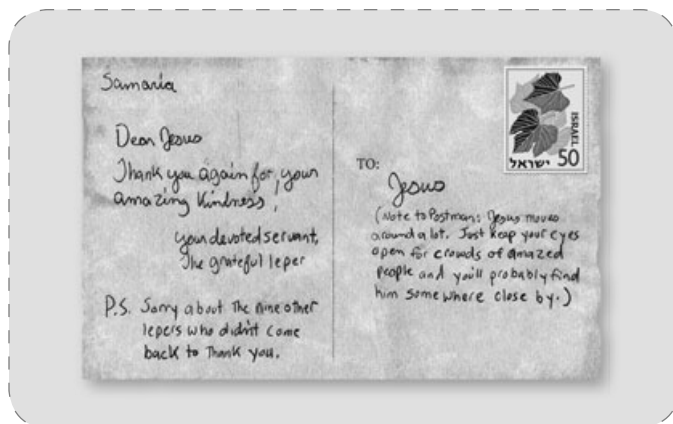 Samaria
Dear Jesus
Thank you again for your
amazing kindness,
your devoted servant,
The grateful leper
P.S. Sorry about the nine other
lepers who didn't come
back to Thank you.
TO:
Jesus
(Note to Postman: Jesus moves
around a lot. Just keep your eyes
open for crowds of amazed
people and you'll probably find
him somewhere close by.)
ISRAEL
ישראל 50